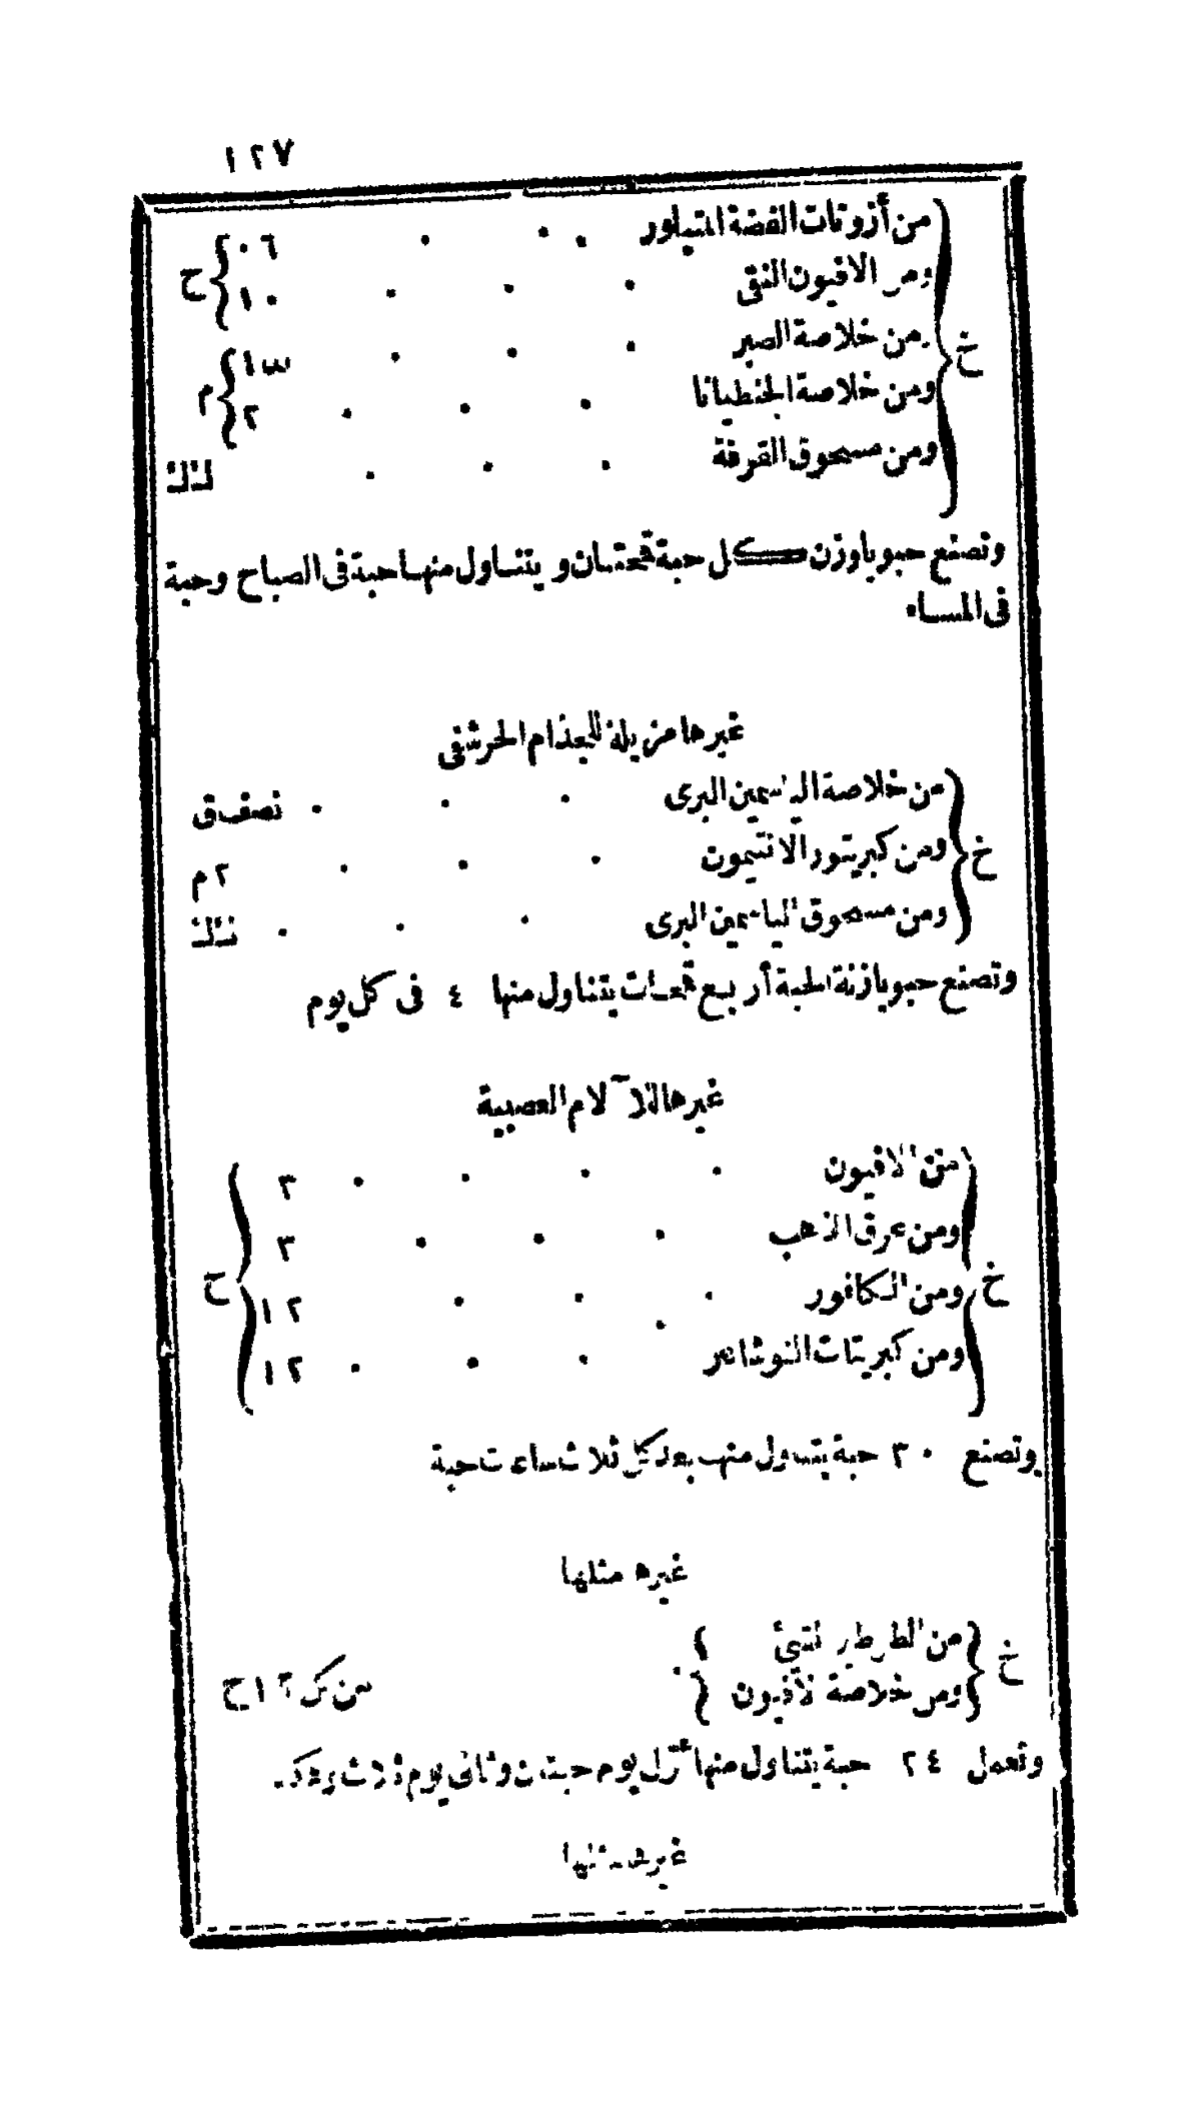 ١٢٧
من أزوتات الفضة المتبلور . . . ٠٦
ومن الافيون النقى . . . ١٠ ح
ومن خلاصة الصبر . . . ١
خ
ومن خلاصة الجنطيانا . . . ٢ م
ومن مسحوق القرفة . . . ك ك
وتصنع حبوبا وزن كل حبة قمحتان ويتناول منها حبة فى الصباح وحبة
فى المساء
غيرها مزيلة للجذام الحرشفى
من خلاصة الياسمين البرى . . . نصف ق
خ ومن كبريتور الانتيمون . . . ٢ م
ومن مسحوق الياسمين البرى . . . ك ك
وتصنع حبوبا زنة الحبة أربع قمحات يتناول منها ٤ فى كل يوم
غيرها للآلام العصبية
من الافيون . . . . ٣
ومن عرق الذهب . . . ٣
خ ومن الكافور . . . ١٢ ح
ومن كبريتات النوشادر . . . ١٢
وتصنع ٣٠ حبة يتناول منها بعد كل ثلاث ساعات حبة
غيرها مثلها
من الطرطير المقيئ
خ ومن خلاصة الافيون . من كل ١٢ ح
وتعمل ٢٤ حبة يتناول منها أول يوم حبتان وثانى يوم ثلاث
غيرها مثلها